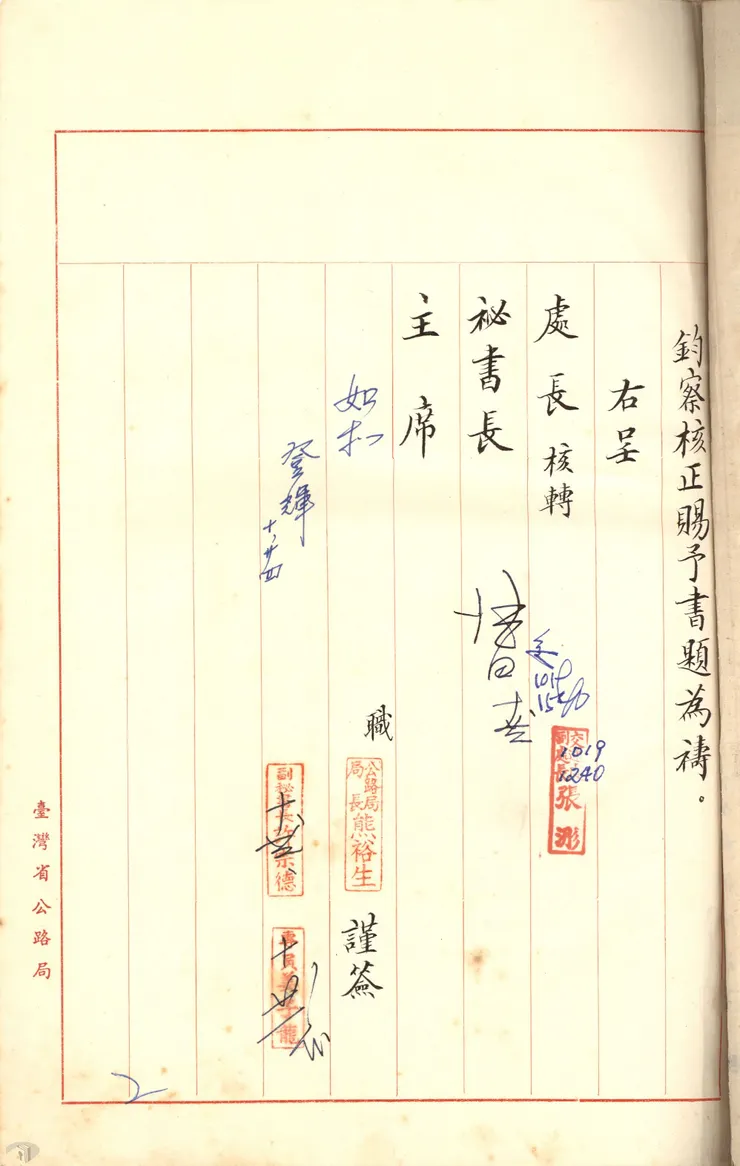 鈞察核正賜予書題為禱。
右呈
處長 核轉
秘書長
主席
1019
1240
交
副處長張
如扣
登輝
十、廿四
職
公路局
局長熊裕生
謹簽
副祕書長
宗德
臺灣省公路局
2